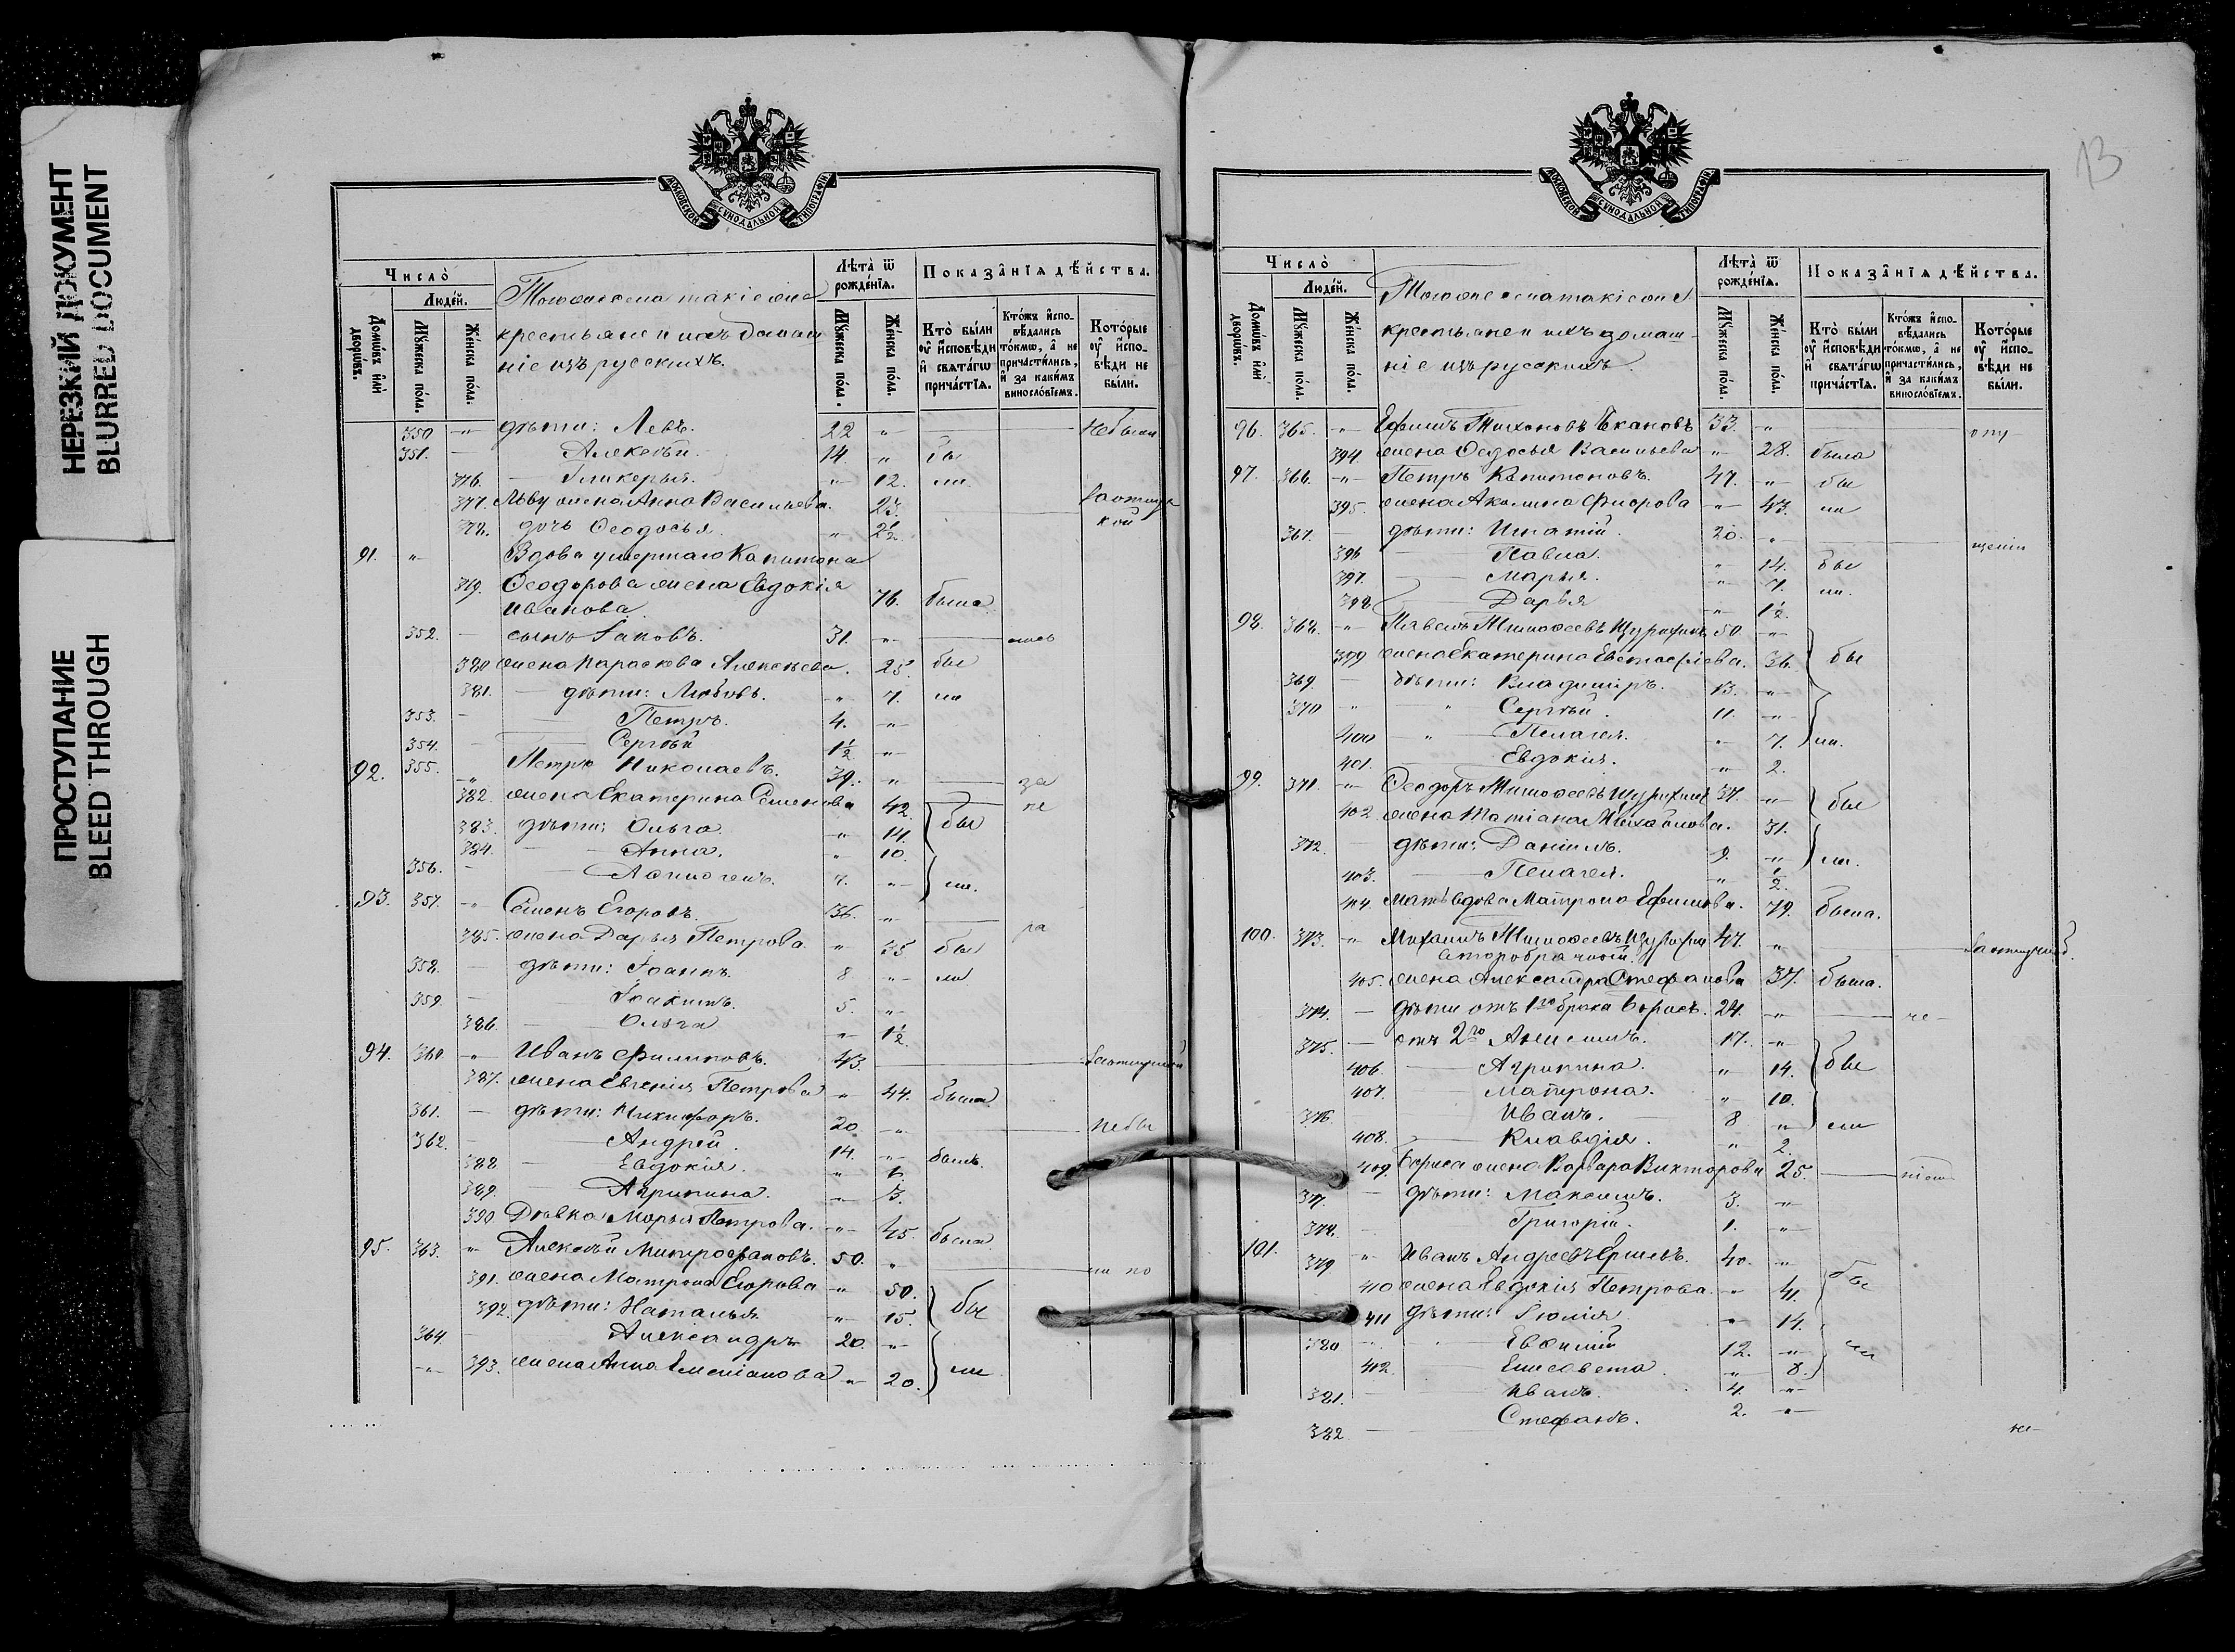 НЕРЕЗКИЙ ДОКУМЕНТ
BLURRED DOCUMENT
ПРОСТУПАНИЕ
BLEED THROUGH
МОСКОВСКОЙ СѴНОДАЛЬНОЙ ТИПОГРАФІИ
Число̀
Людей.
Домѡ́въ и҆лѝ дворѡ́въ.
Мꙋжеска по́ла.
Же́нска по́ла.
Тогоже села такіе же
крестьяне и ихъ домаш
ніе изъ русскихъ.
Лѣта̀ ѿ рожде́нїѧ.
Мꙋжеска по́ла.
Же́нска по́ла.
Показа̑нїѧ дѣ́йства.
Кто̀ бы́ли ᲂу҆ и҆сповѣ́ди и҆ свѧта́гѡ прича́стїѧ.
Кто́жъ и҆спо-вѣ́дались то́кмѡ, а҆ не причасти́лись, и҆ за каки́мъ винослові́емъ.
Кото́рые ᲂу҆ и҆спо-вѣ́ди не бы́ли.
350 -"- дѣти: Левъ. 22 " Небыли
351. - Алексѣй. 14. " бы
376. - Гликерья. " 12. ли.
377. Льву жена Анна Васильева. 23.
378. дочь Ѳеодосья. " 2½
91. " Вдова умершаго Капитона
379. Ѳеодорова жена Евдокія
Иванова 76. была.
352. - сынъ Іаковъ. 31. "
380 жена Параскева Алексѣева. 25. бы
381. - дѣти: Любовь. " 7. ли
353. - Петръ. 4. "
354. - Сергѣй 1½ "
92. 355. " Петръ Николаевъ. 39. " за
382. жена Екатерина Семенова 42. не
383. дѣти: Ольга. " 14. бы
384. - Анна. " 10.
356. - 7. " ли.
93. 357. " Семенъ Егоровъ. 36. " ра
385. жена Дарья Петрова " 35 бы
358. - дѣти: Іоаннъ. 8. " ли
359. - Іоакимъ. 5. "
386. - Ольга " 1½
94. 360 " Иванъ Филиповъ. 43.
387. жена Евгенія Петрова " 44. была
361. - дѣти: Никифоръ. 20 " небы
362. - Андрей. 14. " былъ.
388 - Евдокія. "
389. - Агрипина. " 3.
390 Дѣвка Марья Петрова. " 45. была
95. 363. " Алексѣй Митрофановъ. 50. " ли по
391. жена Матрона Егорова " 50.
392. дѣти: Наталья " 15. бы
364. - Александръ 20. "
" 393. жена Анна Емеліанова " 20. ли
13
МОСКОВСКОЙ СѴНОДАЛЬНОЙ ТИПОГРАФІИ
Число̀
Людей.
Домѡ́въ и҆лѝ дворѡ́въ.
Мꙋжеска по́ла.
Же́нска по́ла.
Тогоже села такіе же
крестьяне и ихъ домаш-
ніе изъ русскихъ.
Лѣта̀ ѿ рожде́нїѧ.
Мꙋжеска по́ла.
Же́нска по́ла.
Показа̑нїѧ дѣ́йства.
Кто̀ бы́ли ᲂу҆ и҆сповѣ́ди и҆ свѧта́гѡ прича́стїѧ.
Кто́жъ и҆спо-вѣ́дались то́кмѡ, а҆ не причасти́лись, и҆ за каки́мъ винослові́емъ.
Кото́рые ᲂу҆ и҆спо-вѣ́ди не бы́ли.
96. 365. " Ефимъ Тихоновъ 33. " опу
394. жена Ѳедосья Васильева " 28. была
97. 366. " Петръ Капитоновъ. 47. " бы
395. жена Акилина Фирова " 43. ли
367. - дѣти: Игнатій. 20. " щенію
396 - Павла. " 14. бы
397. - Марья. " 7. ли.
398 - Дарья " 1½
98. 368. " Павелъ Тимоѳеевъ 50. "
399 жена Екатерина Евстафіева. 36. бы
369. - дѣти: Владиміръ. 13. "
370 " " Сергѣй. 11. "
400 - " Пелагея. " 7. ли.
401. Евдокія. " 2.
99. 371. " Ѳеодоръ Тимоѳеевъ 37. " бы
402 жена Татіана Михайлова. 31.
372. - дѣти: Даніилъ. 9. " ли.
403. - Пелагея. " ½
404. Мать вдова Матрона Ефимова. 79. была.
100. 373. " Михаилъ Тимоѳеевъ 47. "
второбрачный.
405. жена Александра Стефанова 37. была.
374. - дѣти отъ 1го брака Борисъ. 24. " не-
375. - отъ 2го Анисимъ. 17. "
406. - Агрипина. " 14. бы
407. - Матрона. " 10.
376. Иванъ. 8 " ли
408. - Клавдія. " 2.
409. Бориса жена Варвара Викторова 25.
377. - дѣти: Максимъ. 3. "
378. - Григорій. 1. "
101. 379 " Иванъ Андреевъ 40. "
410 жена Евдокія Петрова. " 41. бы
411 дѣти: Іюлія " 14.
380 " Евѳимій 12. "
412. Елисавета. " 8. ли
381. Иванъ. 4. "
382 - Стефанъ. 2. " не-